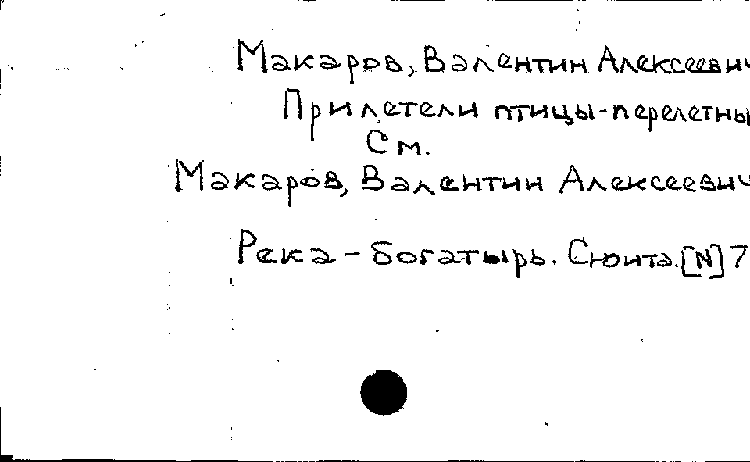 Макаров, Валентин Алексеевич
Прилетели птицы-перелетны
См.
Макаров, Валентин Алексеевич
Река-богатырь. Сюита. [N] 7